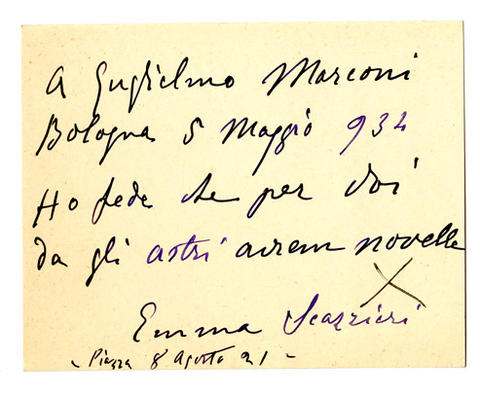 A Guglielmo Marconi
Bologna 5 Maggio 934
Ho fede che per Voi
da gli astri avrem novelle
Emma Scarrieri
- Piazza 8 Agosto 21 -